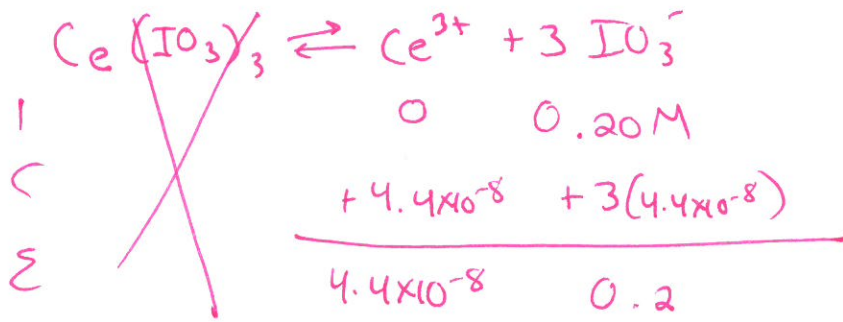 Ce(IO₃)₃ ⇌ Ce³⁺ + 3 IO₃⁻
I 0 0.20M
C +4.4×10⁻⁸ +3(4.4×10⁻⁸)
E 4.4×10⁻⁸ 0.2